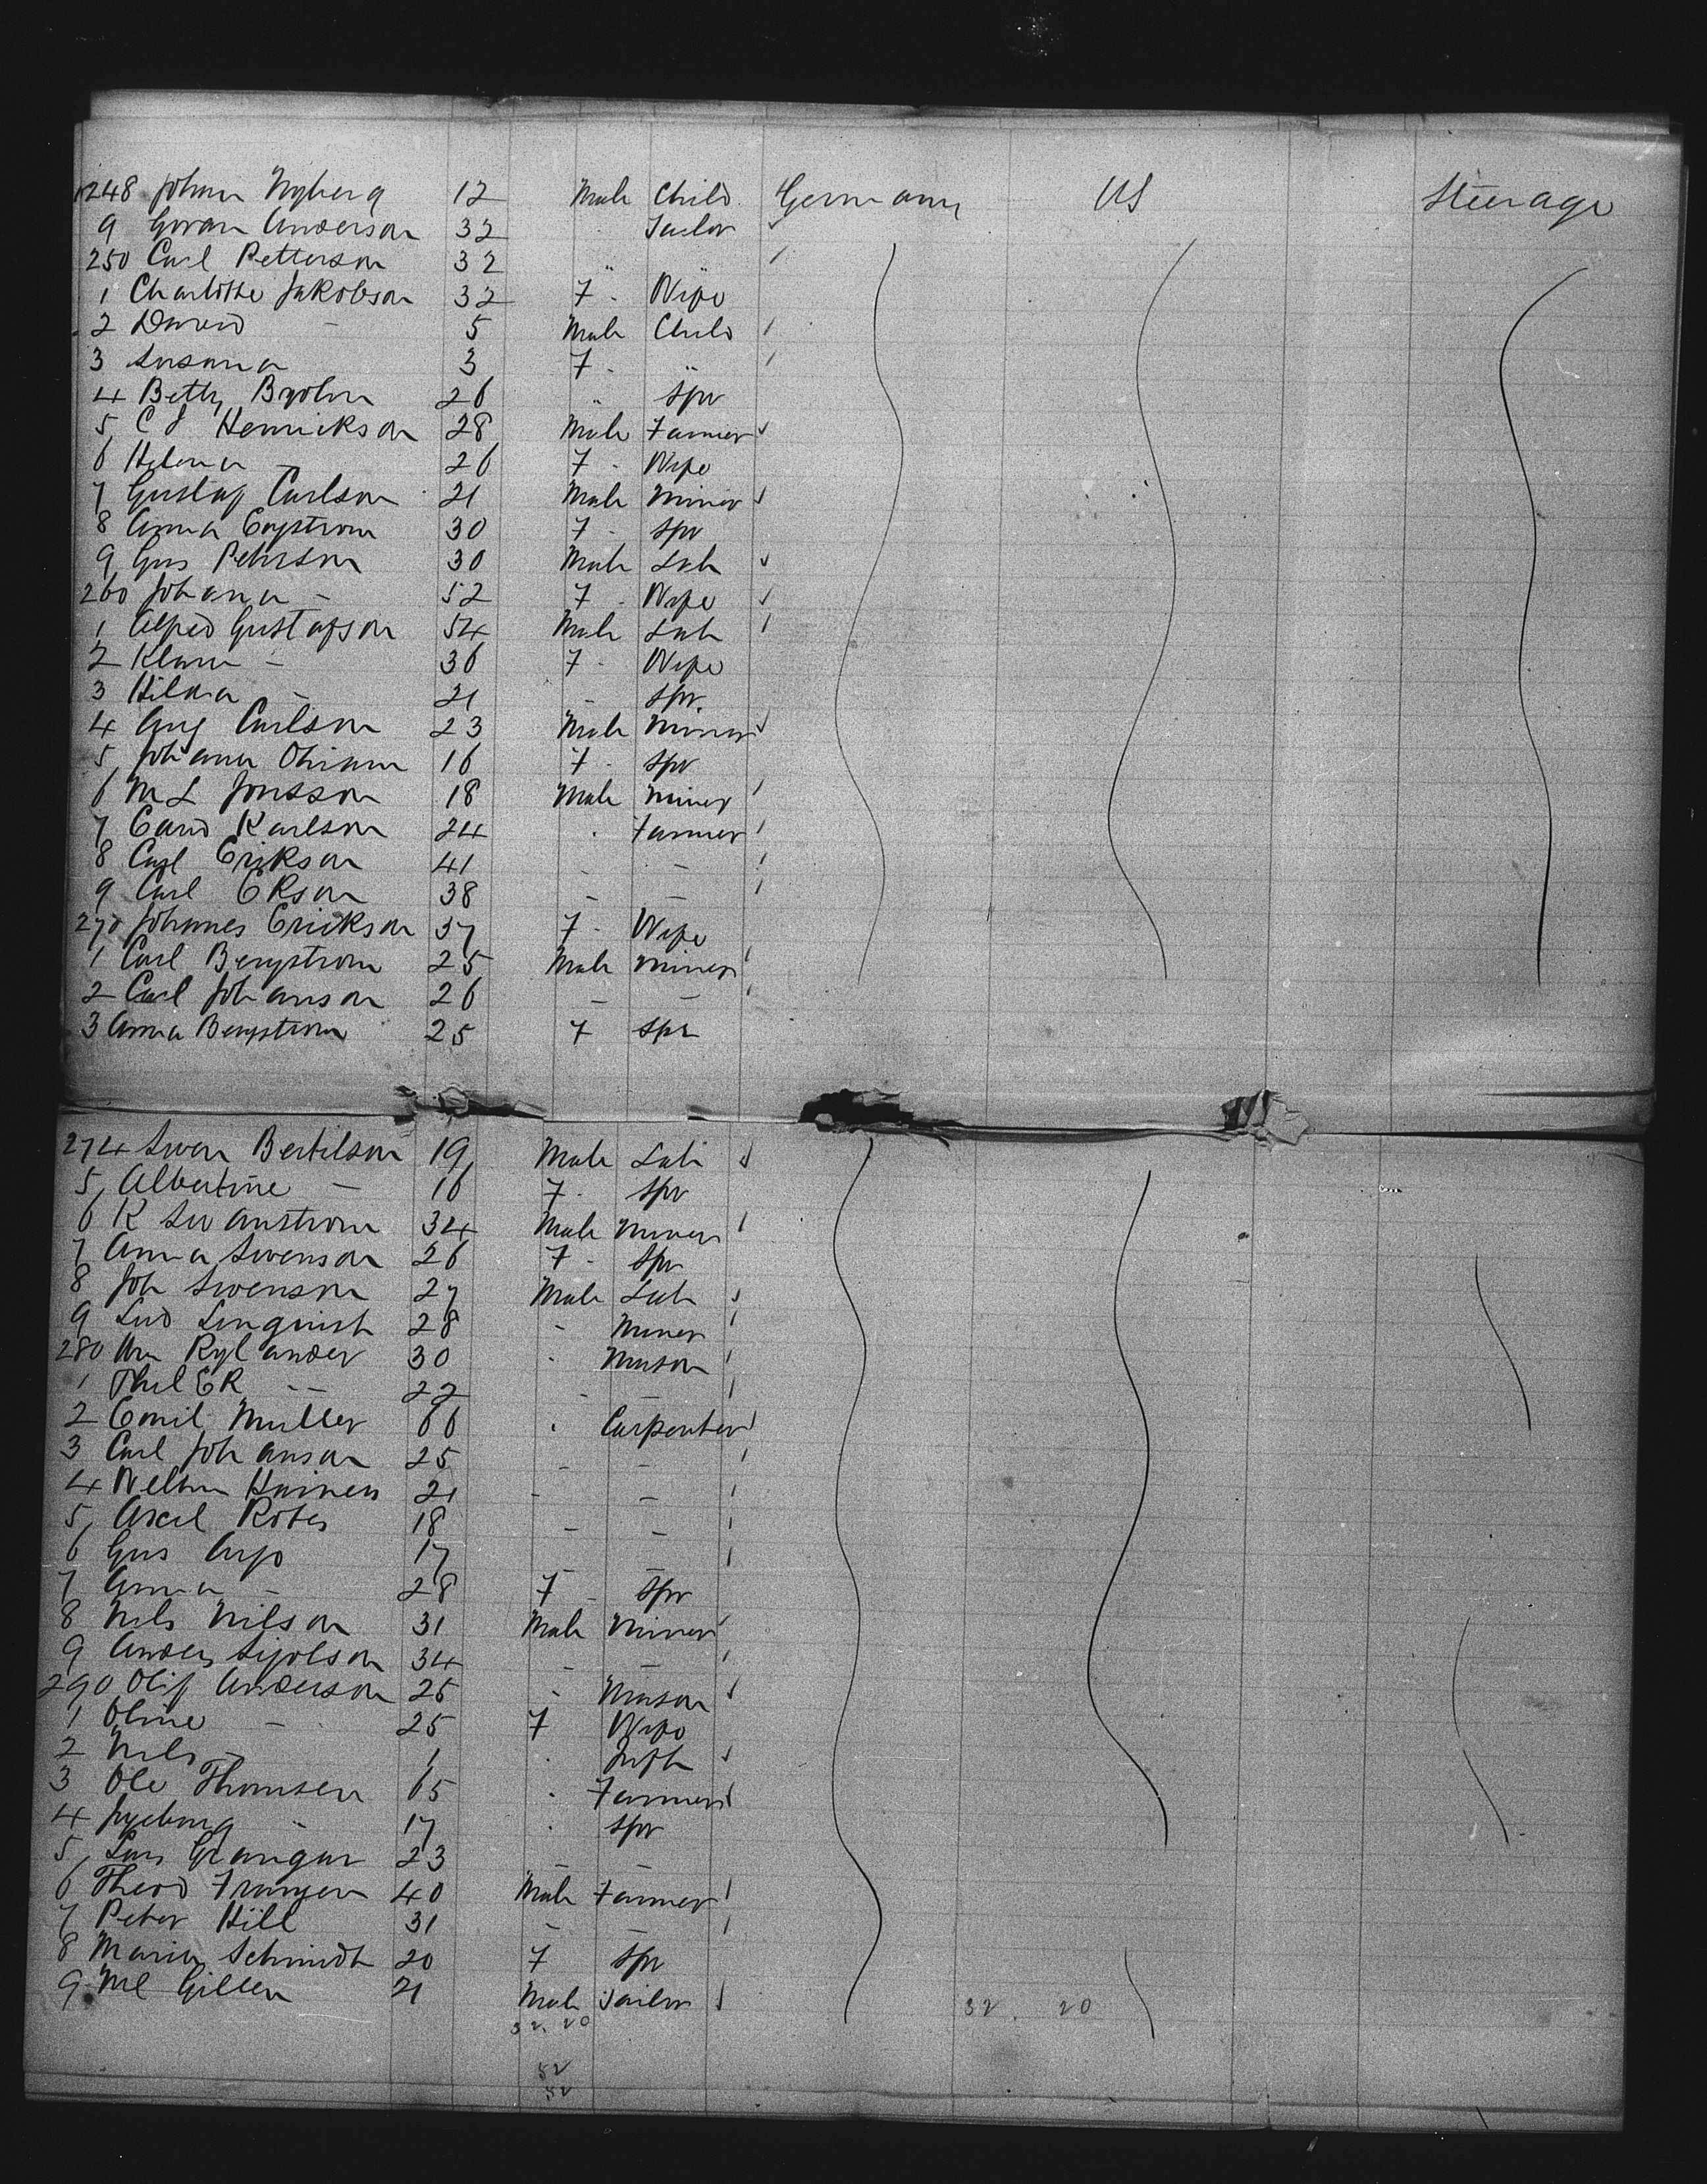 1248 Johan Nyberg 12 Male Child Germany US Steerage
9 Goran Anderson 32 " Tailor
250 Carl Petterson 32 " "
1 Charlotte Jakobson 32 F - Wife
2 David - 5 Male Child
3 Susana 3 F - "
4 Betty 26 " Spr
5 C J Henrikson 28 Male Farmer
6 Helena - 26 F - Wife
7 Gustaf Carlson 21 Male Miner
8 Anna Engstrom 30 F - Spr
9 Gus Peterson 30 Male Lab
260 Johana - 52 F - Wife
1 Alfred Gustafson 54 Male Lab
2 Klara - 36 F - Wife
3 Hilda - 21 - Spr
4 Aug Carlson 23 Male Miner
5 Johana 16 F - Spr
6 M L Jonsson 18 Male Miner
7 Karlson 24 " Farmer
8 Carl Erikson 41 - -
9 Carl Ekson 38 - -
270 Johannes Erickson 37 F - Wife
1 Carl Bergstrom 25 Male Miner
2 Carl Johanson 26 - -
3 Anna Bergstrom 25 F Spr
274 Swen Bertelson 19 Male Lab
5 Albertine - 16 F - Spr
6 K Swanstrom 34 Male Miner
7 Anna Swenson 26 F - Spr
8 Joh Swenson 27 Male Lab
9 Lud Linquist 28 - Miner
280 Wm Rylander 30 " Mason
1 - - 22 - -
2 Emil Muller 66 " Carpenter
3 Carl Johanson 25 - -
4 21 - -
5 Axel 18 - -
6 Gus 17 - -
7 Anna - 28 F - Spr
8 Nils Nilson 31 Male Miner
9 Anders 34 - -
290 Olif Anderson 25 - Mason
1 Oline - 25 F Wife
2 Nils - 1 " Inft
3 Ole Thomsen 65 " Farmer
4 Ingeborg " 17 " Spr
5 Lars 23 - -
6 Theod 40 Male Farmer
7 Peter Hill 31 - -
8 Maria Schmidt 20 F Spr
9 Gillen 21 Male Tailor
32. 20 32. 20
52
52